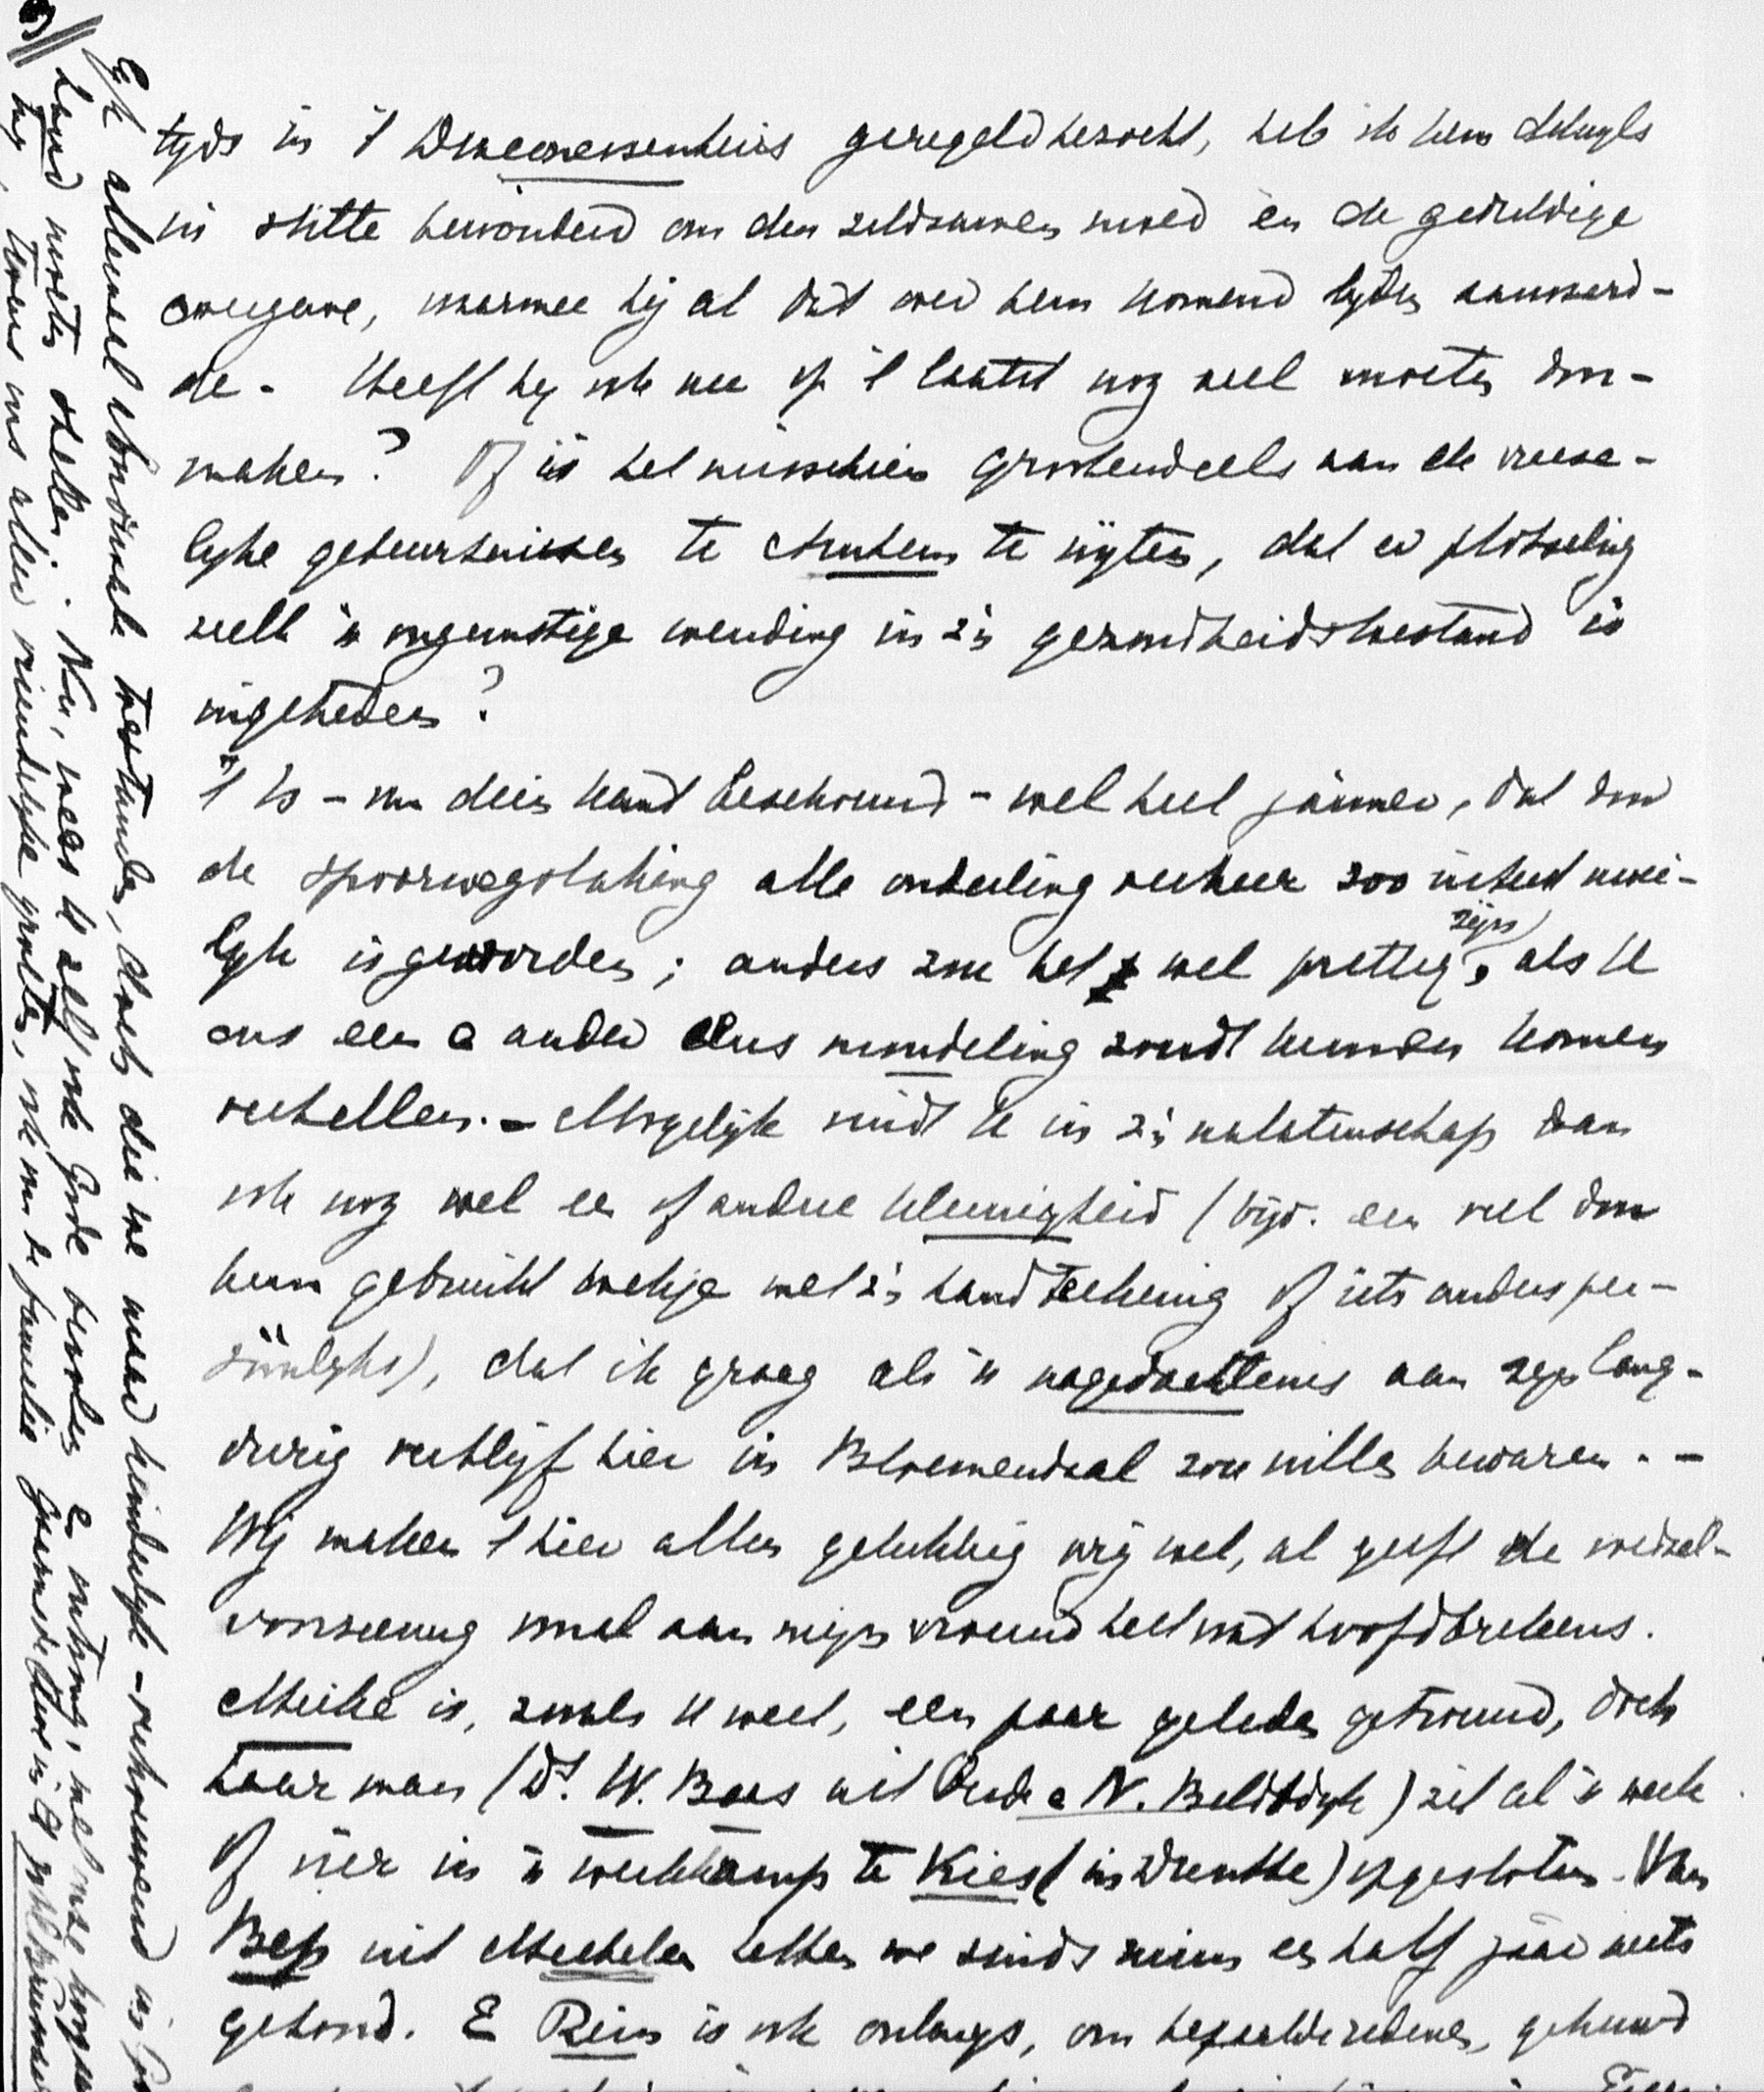 tyds in 't Diaconessenhuis geregeld bezocht, heb ik hem dikwyls
in stilte bewonderd om den zeldzamen moed en de geduldige
overgave, waarmee hij al dat over hem komend lyden aanvaard-
de. Heeft hy ook nu op 't laatst nog veel moeten door-
maken? Of is het misschien grootendeels aan de vreese-
lyke gebeurtenissen te Arnhem te wyten, dat er plotseling
zulk 'n ongunstige wending in z'n gezondheidstoestand is
ingetreden?
't Is - van dien kant beschouwd - wel heel jammer, dat door
de spoorwegstaking alle onderling verkeer zoo uiterst moei-
lyk is geworden; anders zou het wel prettig zijn, als U
ons een & ander eens mondeling zoudt kunnen komen
vertellen. - Mogelijk vindt U in z'n nalatenschap dan
ook nog wel een of andere kleinigheid (bijv. een veel door
hem gebruikt boekje met z'n handteekening of iets anders per-
soonlyks), dat ik graag als 'n nagedachtenis aan zyn lang-
durig verblijf hier in Bloemendaal zou willen bewaren. -
Wij maken 't hier allen gelukkig vrij wel, al geeft de voedsel-
voorziening vooral aan mijn vrouw heel wat hoofdbrekens.
Meike is, zooals U weet, een jaar geleden getrouwd, doch
haar man (Ds. W. Baas uit Oude & N. Bildtdyk) zit al 'n week
of vier in 'n werkkamp te Kiel (in Drenthe) opgesloten. Van
Bep uit Mechelen hebben we sinds ruim een half jaar niets
gehoord. & Rein is ook onlangs, om bepaalde redenen, gehuwd
Egk allemaal abnormale toestanden, doch die we maar kinderlyk-vertrouwend in
hand moeten stellen. Nu, wees U zelf ook Gode bevolen & ontvang, met
van ons allen vriendelyke groeten, ook van de familie